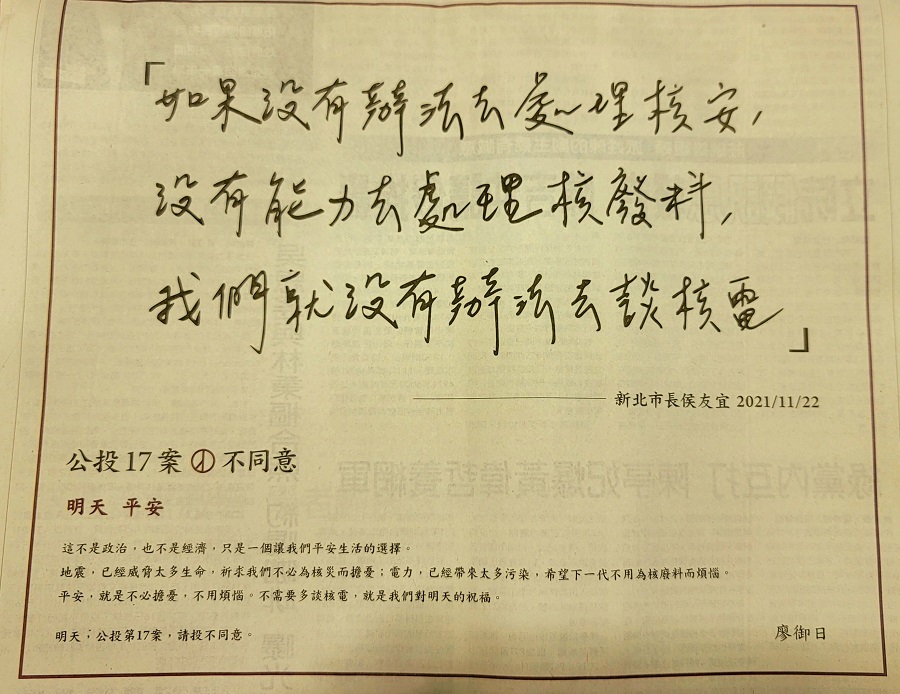 「如果没有辦法去處理核安,
没有能力去處理核廢料,
我們就没有辦法去談核電」
新北市長侯友宜 2021/11/22
公投17案 不同意
明天 平安
這不是政治,也不是經濟,只是一個讓我們平安生活的選擇。
地震,已經威脅太多生命,祈求我們不必為核災而擔憂;電力,已經帶來太多污染,希望下一代不用為核廢料而煩惱。
平安,就是不必擔憂,不用煩惱。不需要多談核電,就是我們對明天的祝福。
明天,公投第17案,請投不同意。
廖御日